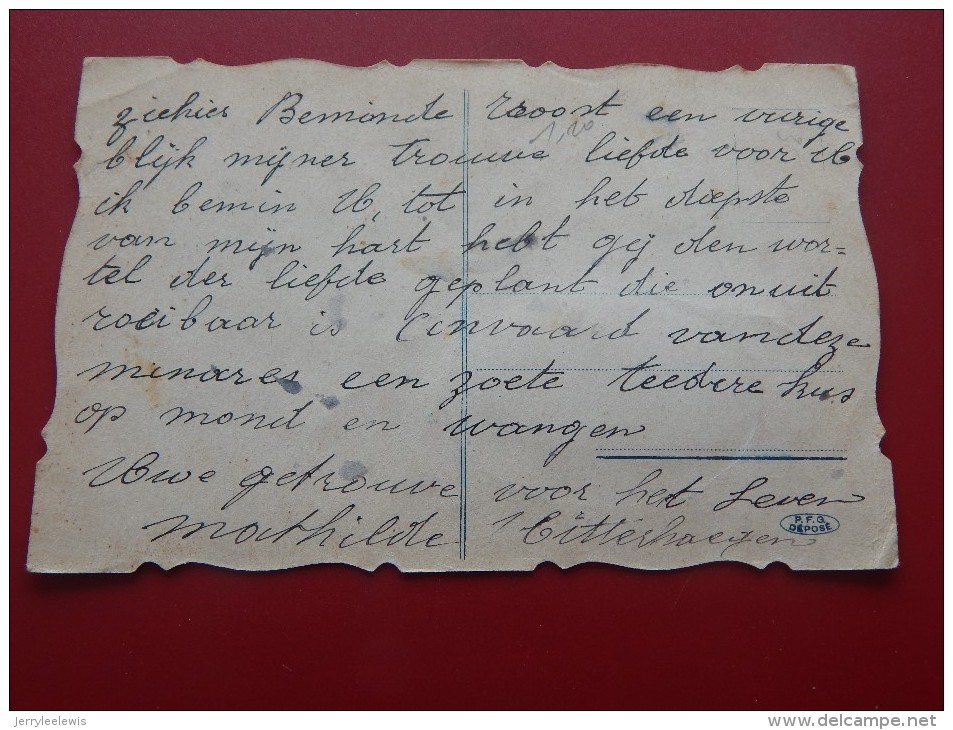 ziehier Beminde een vurige
1,20
blijk mijner trouwe liefde voor U
ik bemin U, tot in het diepste
van mijn hart hebt gij den wor=
tel der liefde geplant die onuit
roeibaar is vandeze
een zoete teedere kus
op mond en wangen
Uwe getrouwe voor het Leven
Mathilde
P.F.G.
DÉPOSÉ
jerryleelewis
www.delcampe.net